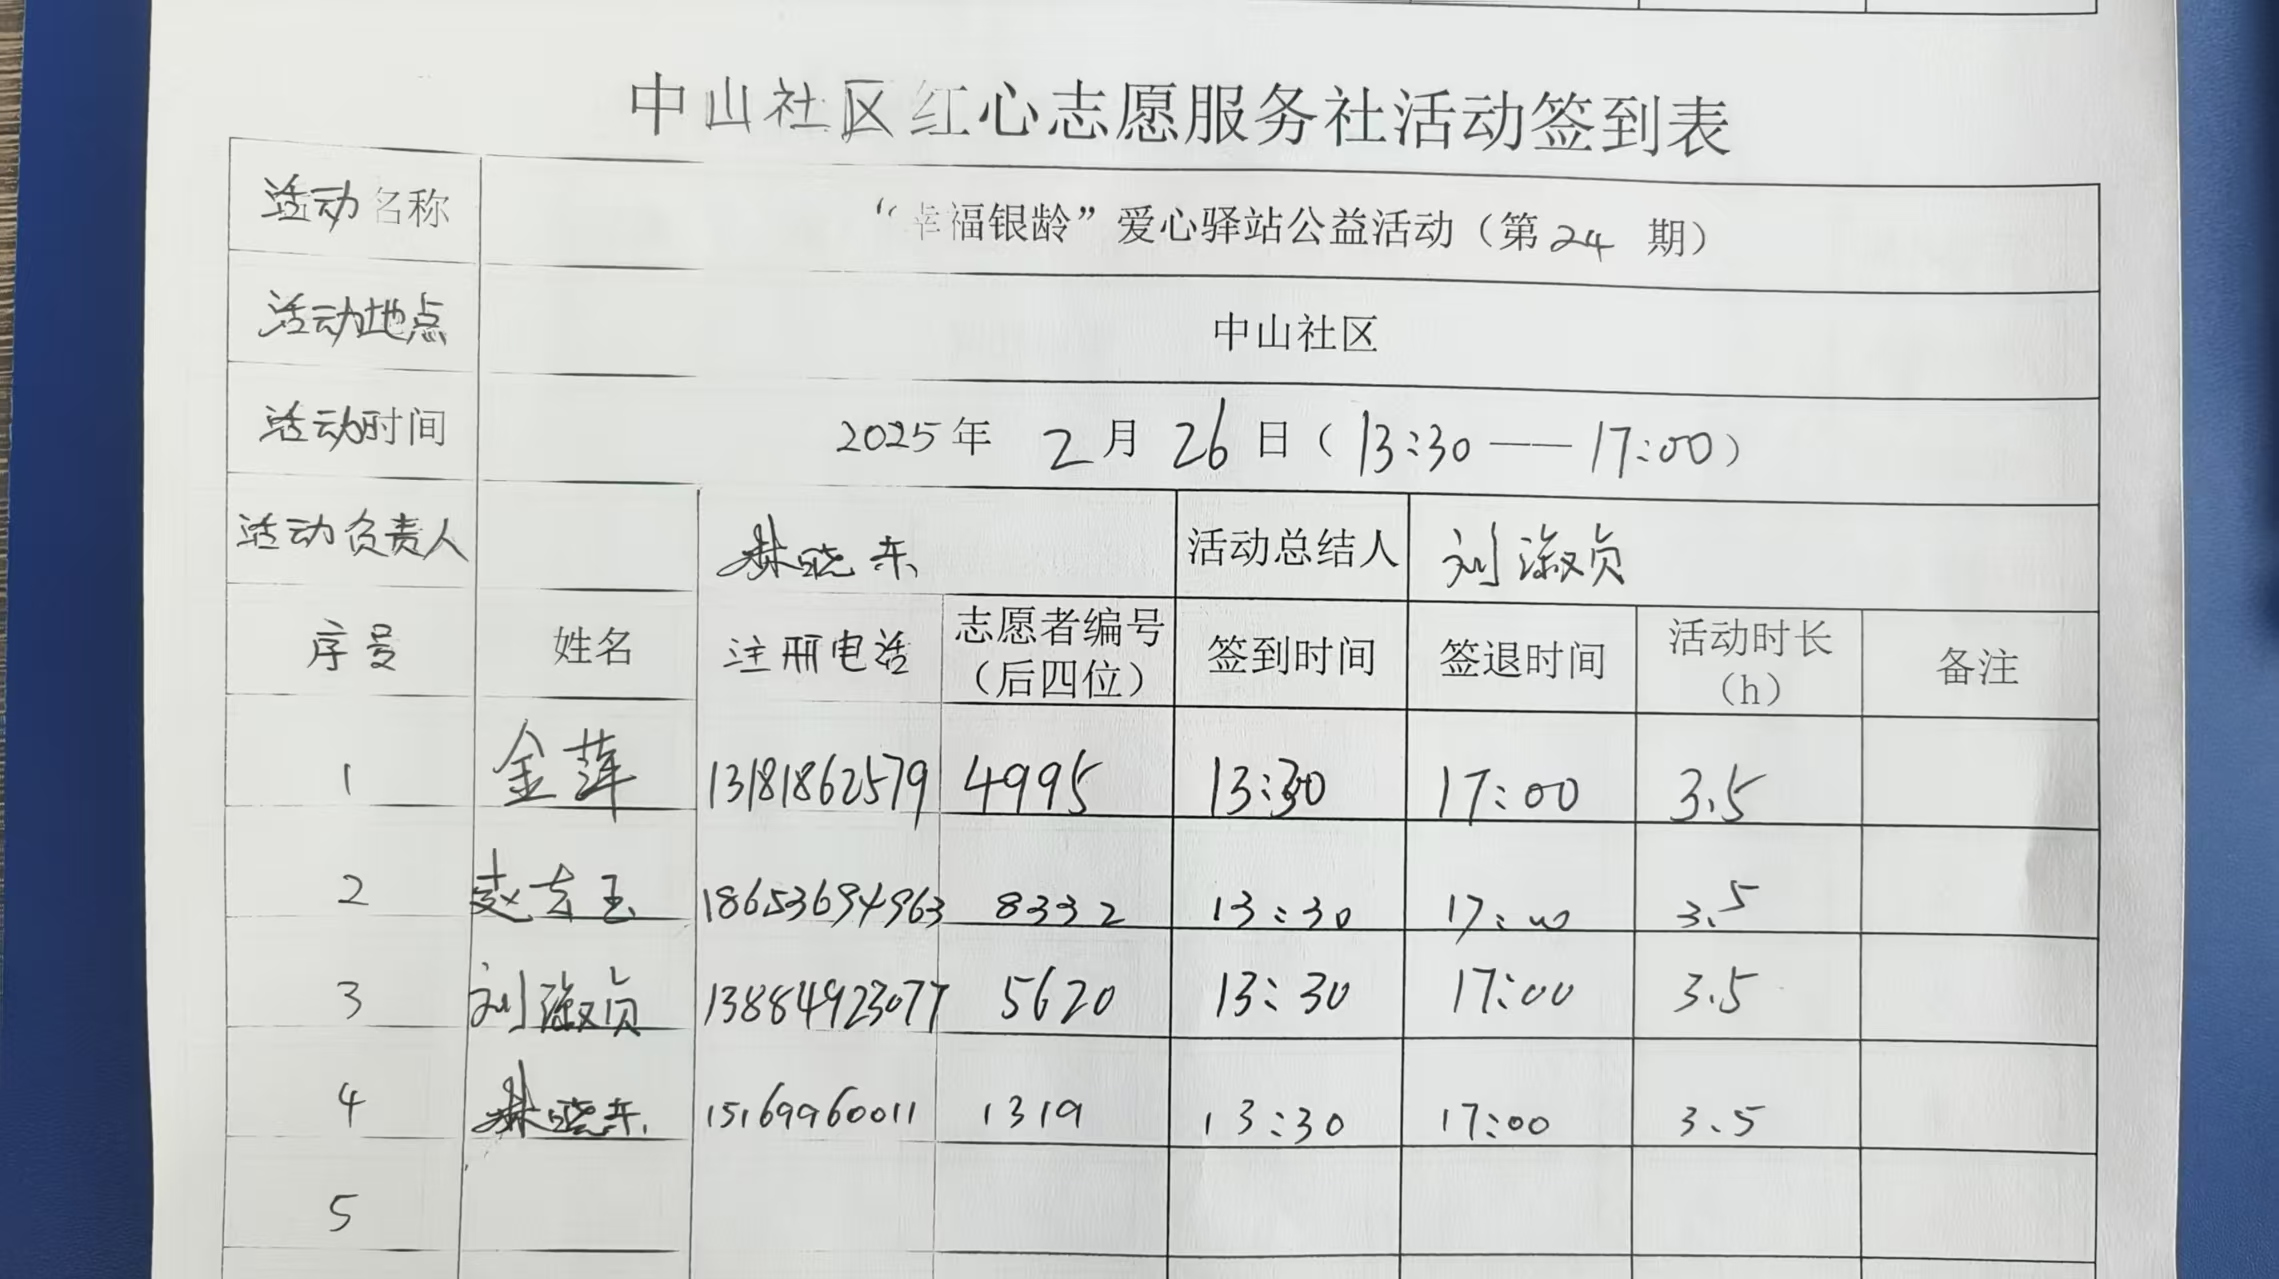 中山社区红心志愿服务社活动签到表
活动名称 “幸福银龄”爱心驿站公益活动（第24期）
活动地点 中山社区
活动时间 2025年 2月26日（13:30——17:00）
活动负责人 林晓东 活动总结人 刘淑贞
序号 姓名 注册电话 志愿者编号（后四位） 签到时间 签退时间 活动时长（h） 备注
1 金萍 13181862579 4995 13:30 17:00 3.5
2 赵玉 18653694963 8332 13:30 17:00 3.5
3 刘淑贞 13884923077 5620 13:30 17:00 3.5
4 林晓东 15169960011 1319 13:30 17:00 3.5
5